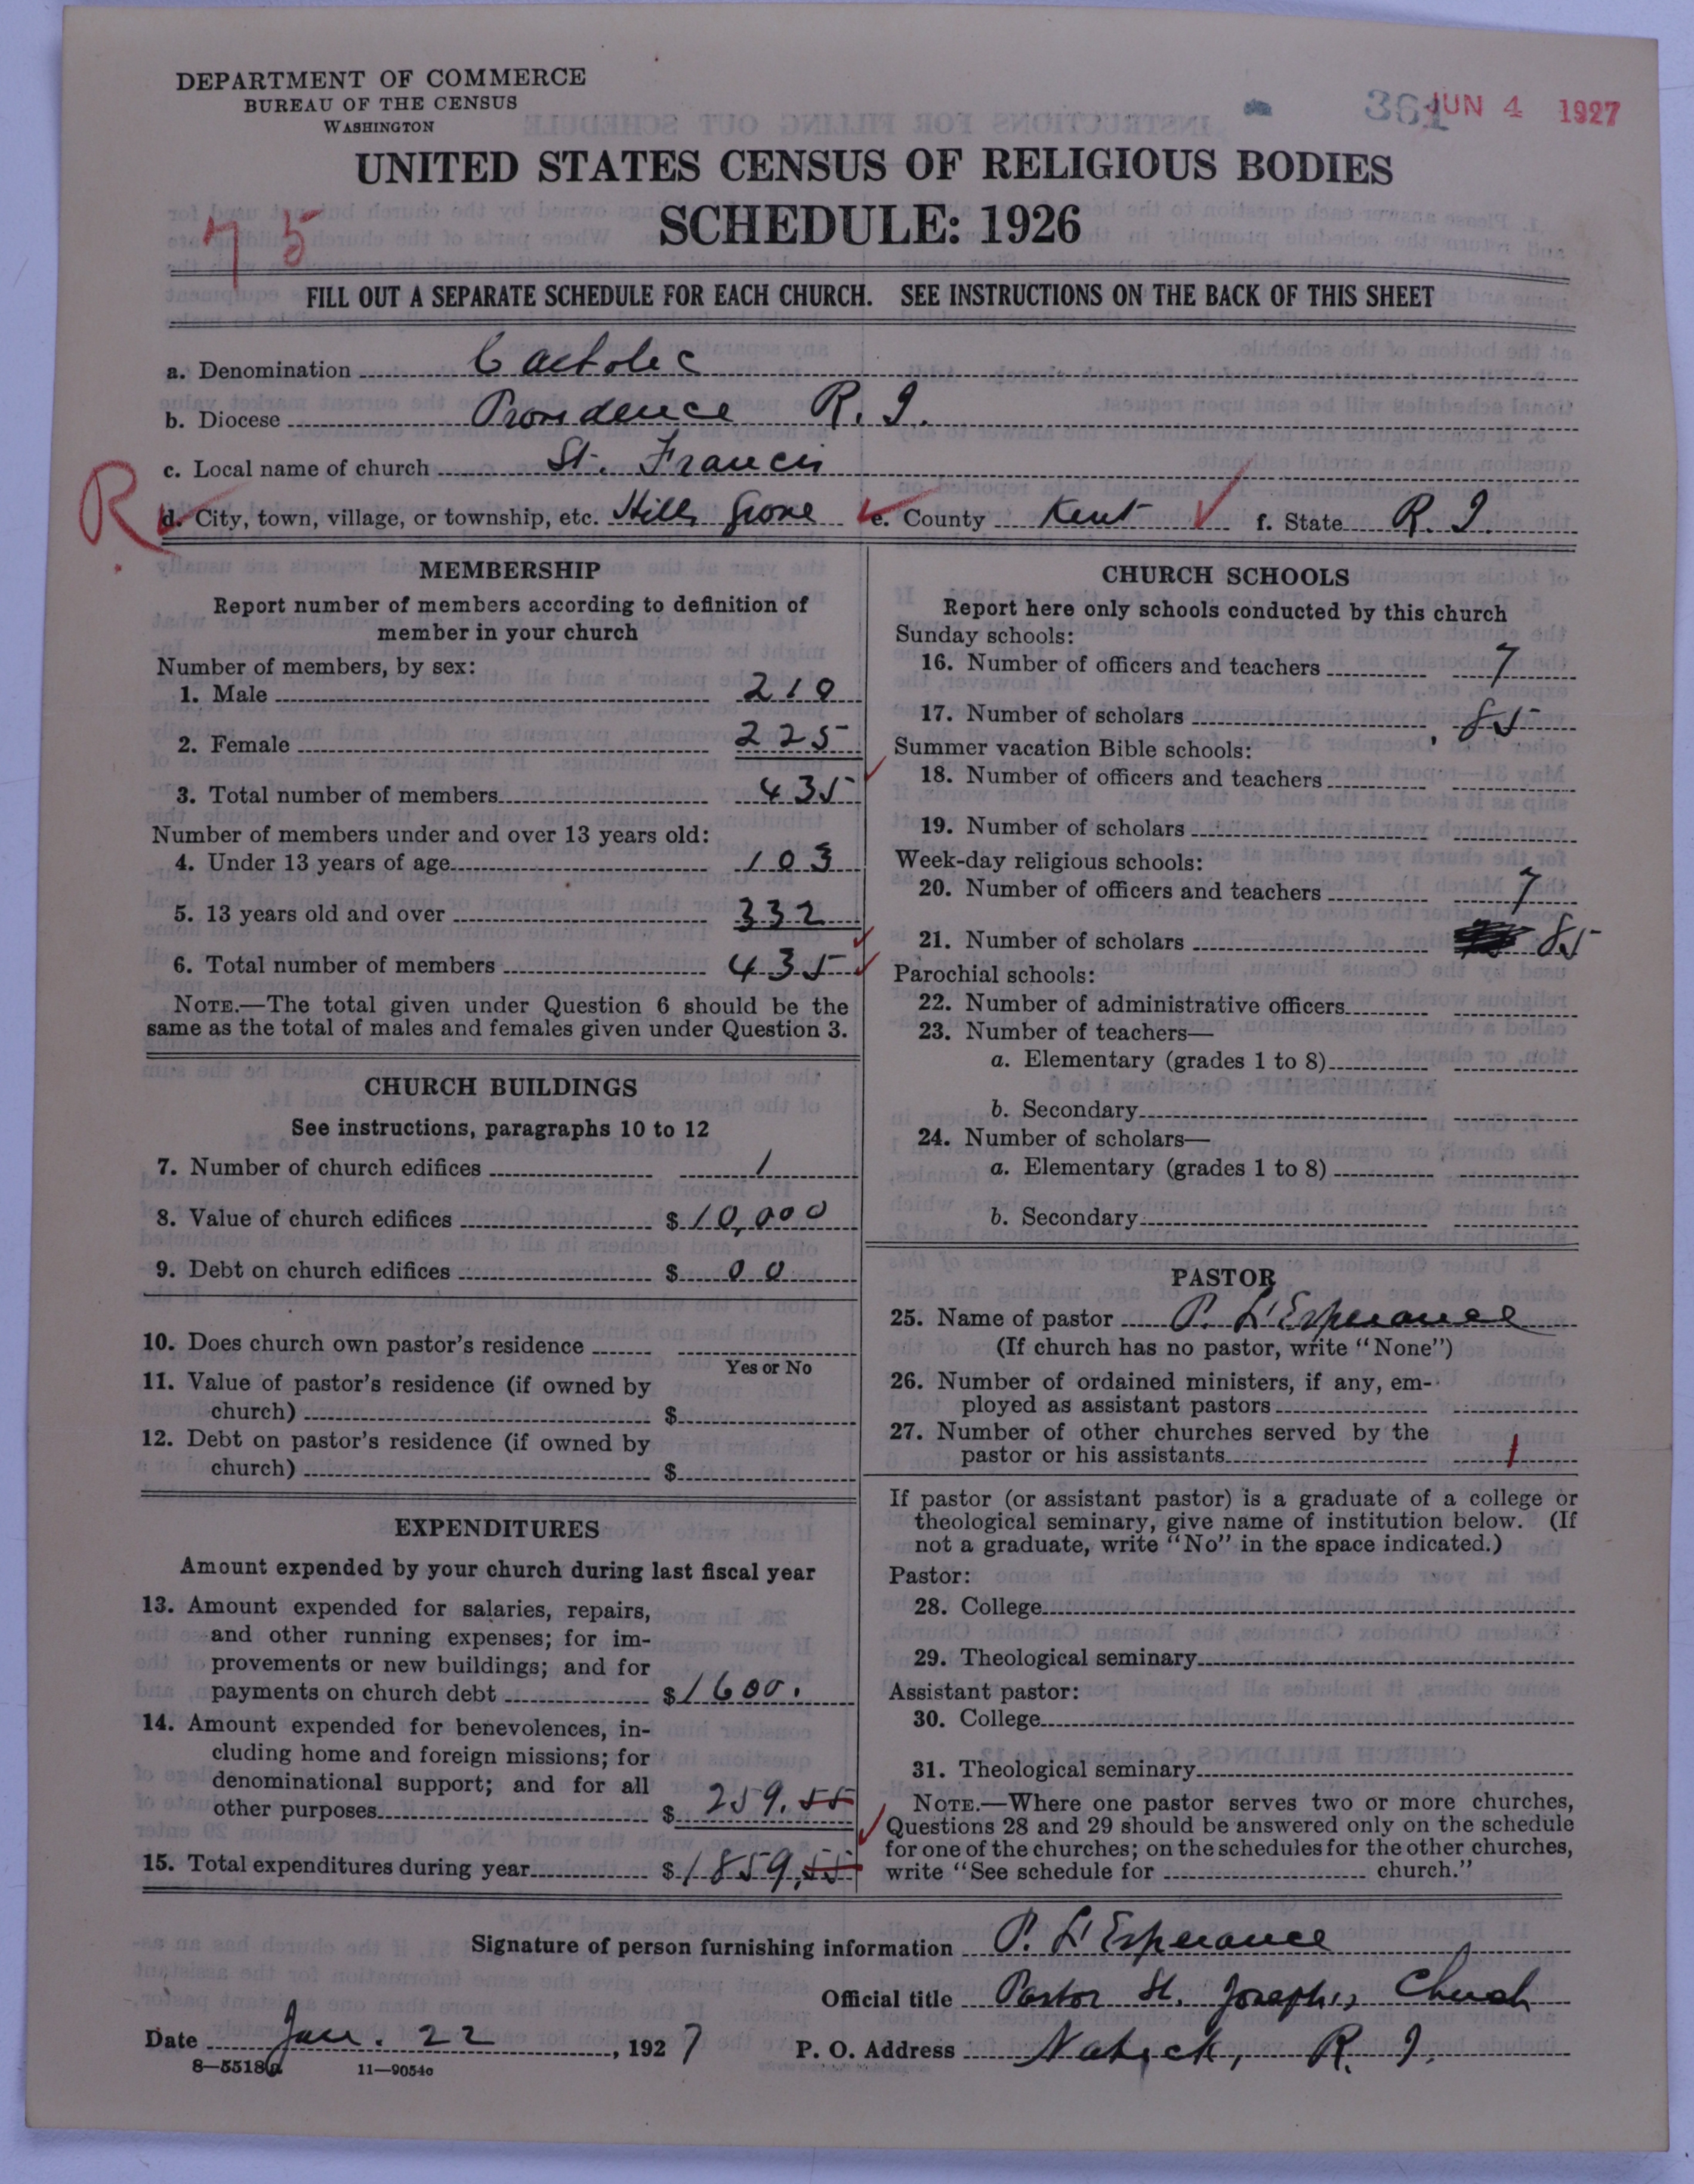 DEPARTMENT OF COMMERCE
BUREAU OF THE CENSUS
WASHINGTON
361 JUN 4 1927
UNITED STATES CENSUS OF RELIGIOUS BODIES
SCHEDULE: 1926
75
FILL OUT A SEPARATE SCHEDULE FOR EACH CHURCH. SEE INSTRUCTIONS ON THE BACK OF THIS SHEET
a. Denomination Catholic
b. Diocese Providence R. I.
c. Local name of church St. Francis
R d. City, town, village, or township, etc. Hills Grove e. County Kent f. State R. I.
MEMBERSHIP
Report number of members according to definition of
member in your church
Number of members, by sex:
1. Male 210
2. Female 225
3. Total number of members 435
Number of members under and over 13 years old:
4. Under 13 years of age 103
5. 13 years old and over 332
6. Total number of members 435
NOTE.—The total given under Question 6 should be the
same as the total of males and females given under Question 3.
CHURCH BUILDINGS
See instructions, paragraphs 10 to 12
7. Number of church edifices 1
8. Value of church edifices $ 10,000
9. Debt on church edifices $ 00
10. Does church own pastor's residence
Yes or No
11. Value of pastor's residence (if owned by
church) $
12. Debt on pastor's residence (if owned by
church) $
EXPENDITURES
Amount expended by your church during last fiscal year
13. Amount expended for salaries, repairs,
and other running expenses; for im-
provements or new buildings; and for
payments on church debt $ 1600.
14. Amount expended for benevolences, in-
cluding home and foreign missions; for
denominational support; and for all
other purposes $ 259.55
15. Total expenditures during year $ 1859,55
CHURCH SCHOOLS
Report here only schools conducted by this church
Sunday schools:
16. Number of officers and teachers 7
17. Number of scholars 85
Summer vacation Bible schools:
18. Number of officers and teachers
19. Number of scholars
Week-day religious schools:
20. Number of officers and teachers 7
21. Number of scholars 85
Parochial schools:
22. Number of administrative officers
23. Number of teachers—
a. Elementary (grades 1 to 8)
b. Secondary
24. Number of scholars—
a. Elementary (grades 1 to 8)
b. Secondary
PASTOR
25. Name of pastor P. L'Esperance
(If church has no pastor, write "None")
26. Number of ordained ministers, if any, em-
ployed as assistant pastors
27. Number of other churches served by the
pastor or his assistants 1
If pastor (or assistant pastor) is a graduate of a college or
theological seminary, give name of institution below. (If
not a graduate, write "No" in the space indicated.)
Pastor:
28. College
29. Theological seminary
Assistant pastor:
30. College
31. Theological seminary
NOTE.—Where one pastor serves two or more churches,
Questions 28 and 29 should be answered only on the schedule
for one of the churches; on the schedules for the other churches,
write "See schedule for church."
Signature of person furnishing information P. L'Esperance
Official title Pastor St. Joseph's Church
Date Jan. 22, 1927 P. O. Address Natick, R. I.
8—5518a 11—9054c